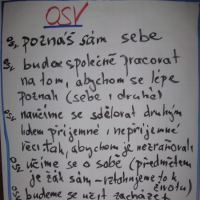 OSV
poznáš sám sebe
budou společně pracovat
na tom, abychom se lépe
poznali (sebe i druhé)
naučíme se sdělovat druhým
lidem příjemné i nepříjemné
věci tak, abychom je nezraňovali
učíme se o sobě (předmětem
je žák sám – vztahujeme to k
životu)
budeme se učit zacházet